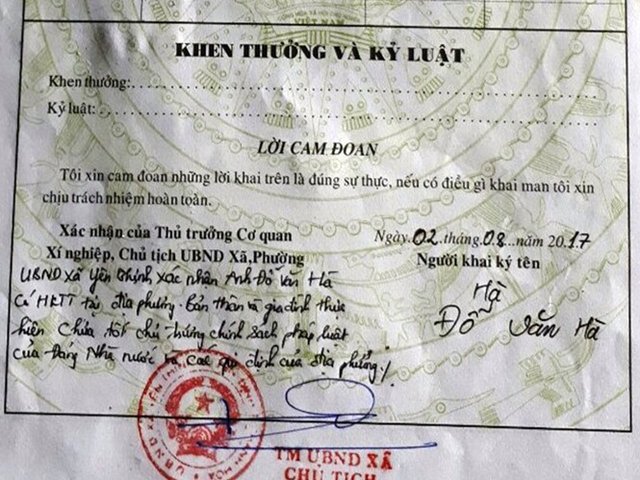 VIỆT NAM
KHEN THƯỞNG VÀ KỶ LUẬT
Khen thưởng:
Kỷ luật:
LỜI CAM ĐOAN
Tôi xin cam đoan những lời khai trên là đúng sự thực, nếu có điều gì khai man tôi xin
chịu trách nhiệm hoàn toàn.
Xác nhận của Thủ trưởng Cơ quan
Xí nghiệp, Chủ tịch UBND Xã,Phường
Ngày 02 tháng 08 năm 2017
Người khai ký tên
UBND xã Yên Thịnh xác nhận Anh Đỗ Văn Hà
Có HKTT tại địa phương. Bản thân và gia đình thực
hiện Chưa tốt chủ trương chính sách pháp luật
của Đảng Nhà nước và các quy định của địa phương/.
Hà
Đỗ Văn Hà
TM UBND XÃ
CHỦ TỊCH